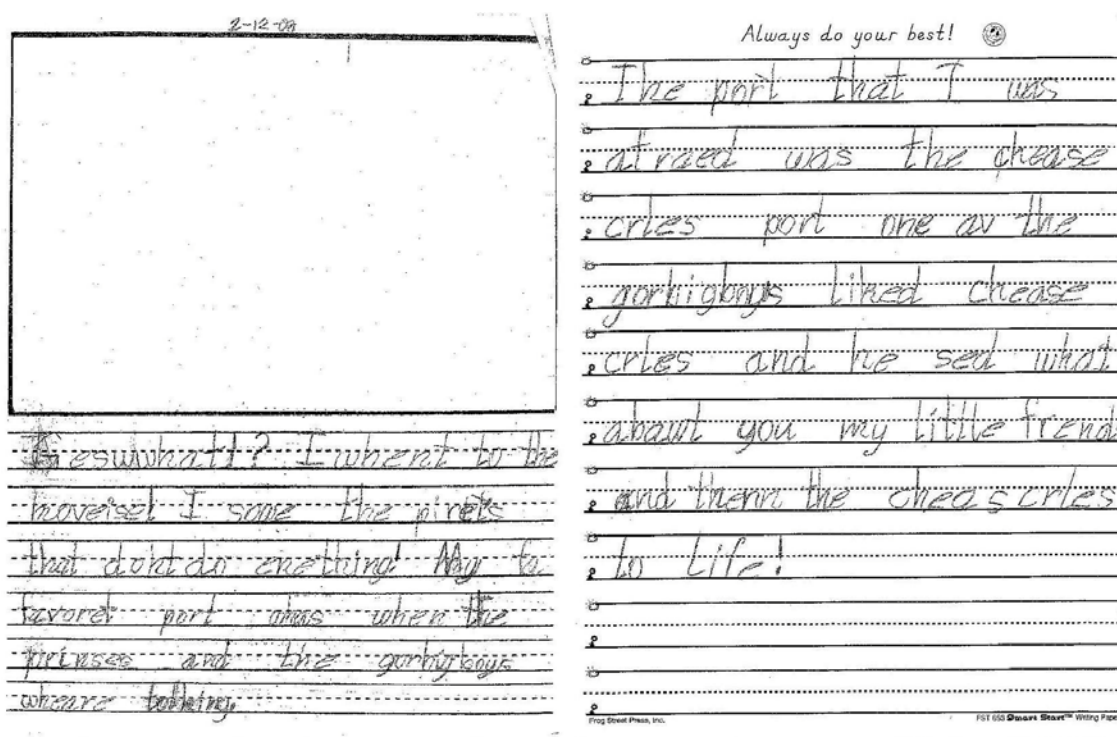 2-12-08
Geswhatt!? I whent to the
moveise! I some the pirets
that dont do enething! My fa
favoret port whas when the
prinses and the gorbigboys
wheare tallking.
Always do your best!
The port that I was
atraed was the chease
crles port one av the
gorbigboys liked chease
crles and he sed what
abawt you my little frend
and thenn the cheas crles
to life!
Frog Street Press, Inc.
FST 653 Smart Start™ Writing Pape